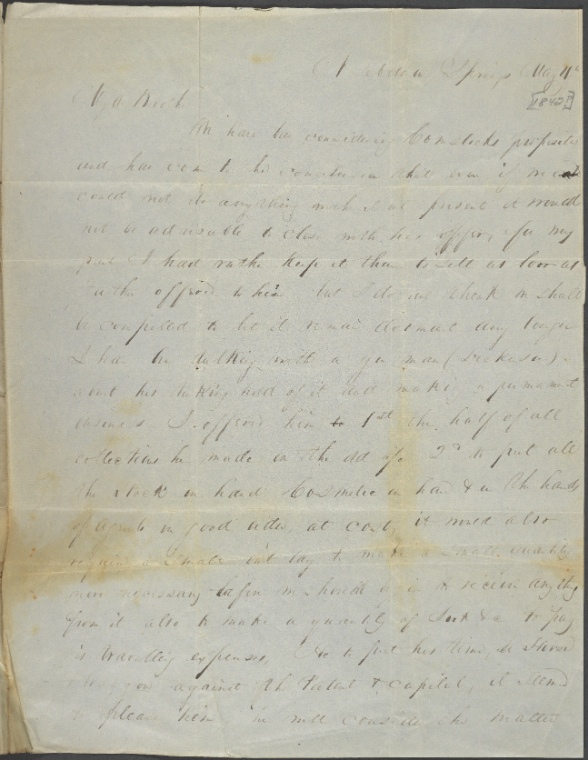 Springs May 11th
[1842?]
My D Brother
We have been considering Comstocks proposals
and have come to the conclusion that even if we
could not do anything with it at present it would
not be advisable to close with his offer, for my
part I had rather keep it than to sell as low as
offered to him but I do not think we shall
be compelled to let it remain dormant any longer
I have been talking with a young man (Dickerson)
about his taking hold of it and making a permanent
business I offered him to 1st the half of all
collections he made in the old 2d to put all
the stock in hand Cosmetic in hand & in the hands
of agents in good order, at cost, it would also
require a small outlay to make a small quantity
more necessary before we should begin to receive anything
from it also to make a quantity of Ink &c to pay
his travelling expenses, to put his time, &
waggon against the Patent & Capital, it seemed
to please him he will consider the matter